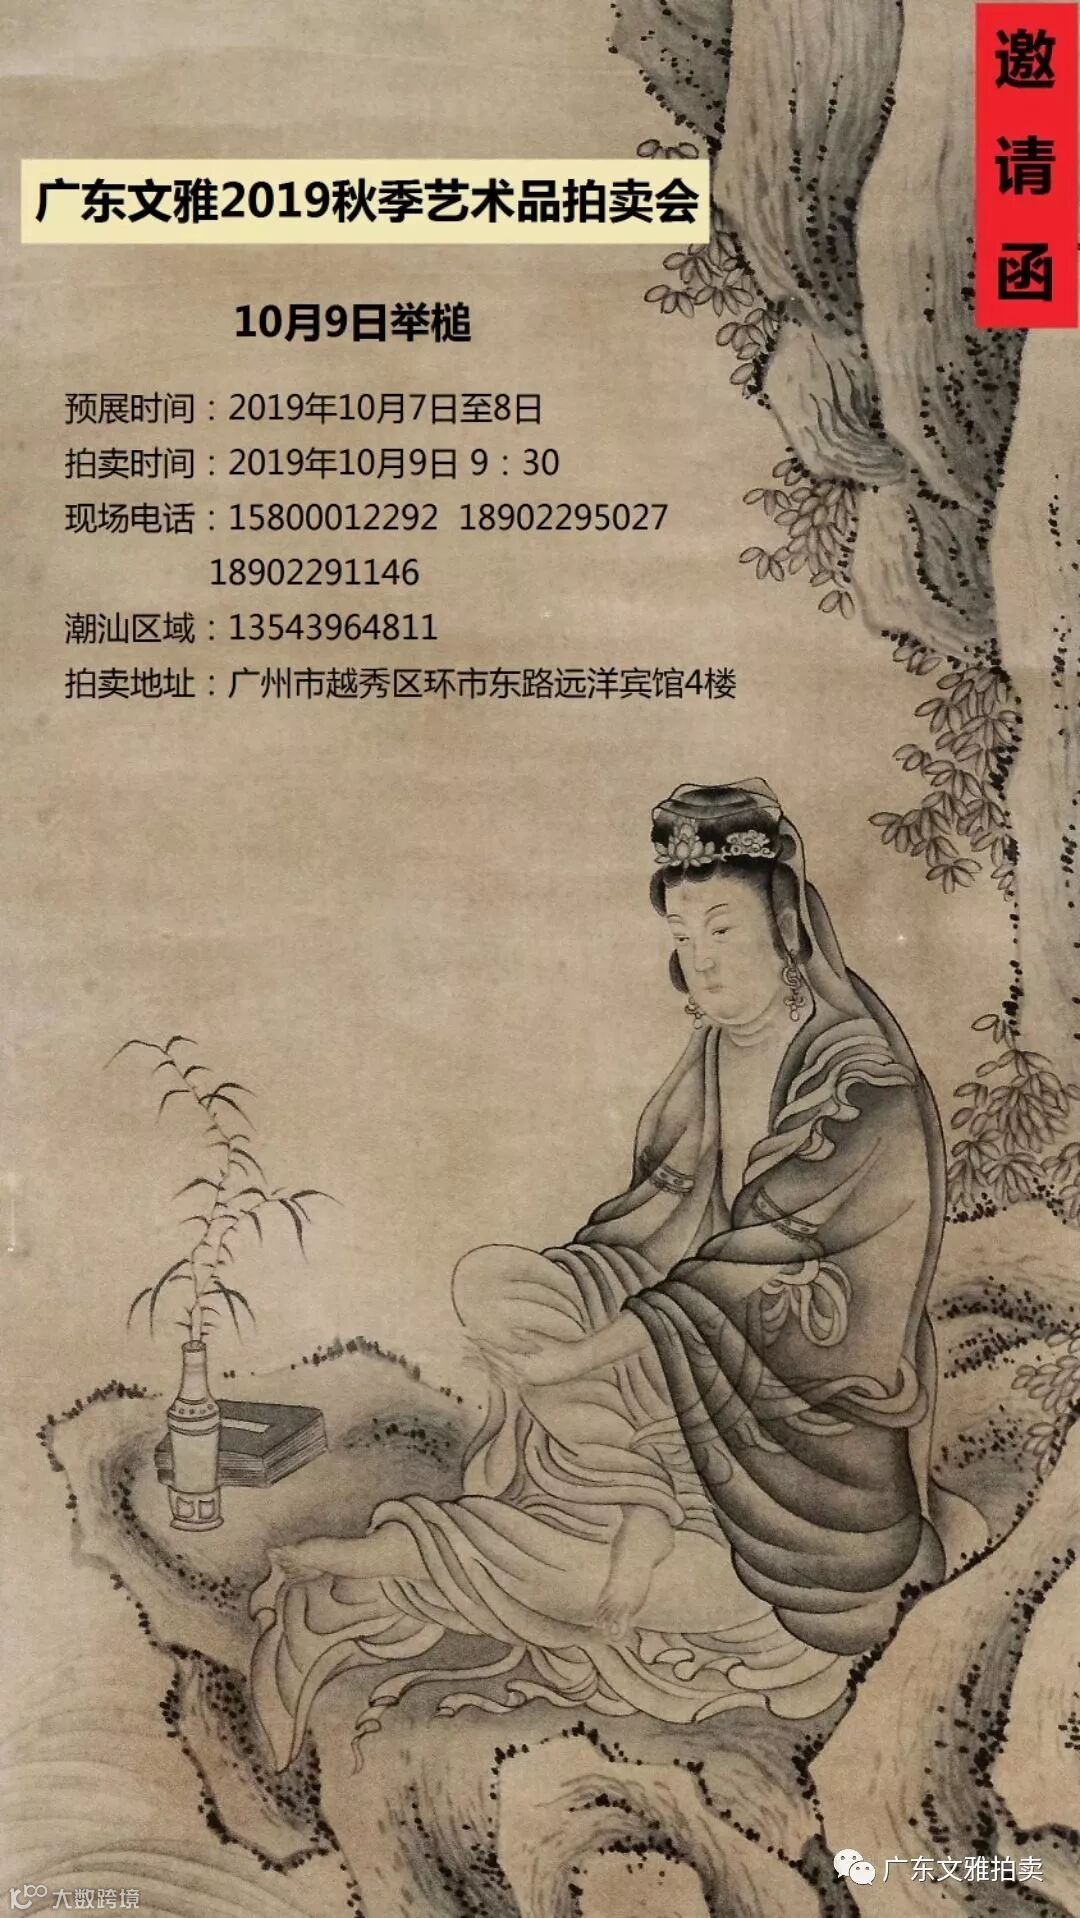 邀请函
广东文雅2019秋季艺术品拍卖会
10月9日举槌
预展时间：2019年10月7日至8日
拍卖时间：2019年10月9日 9：30
现场电话：15800012292 18902295027
18902291146
潮汕区域：13543964811
拍卖地址：广州市越秀区环市东路远洋宾馆4楼
广东文雅拍卖
大数跨境